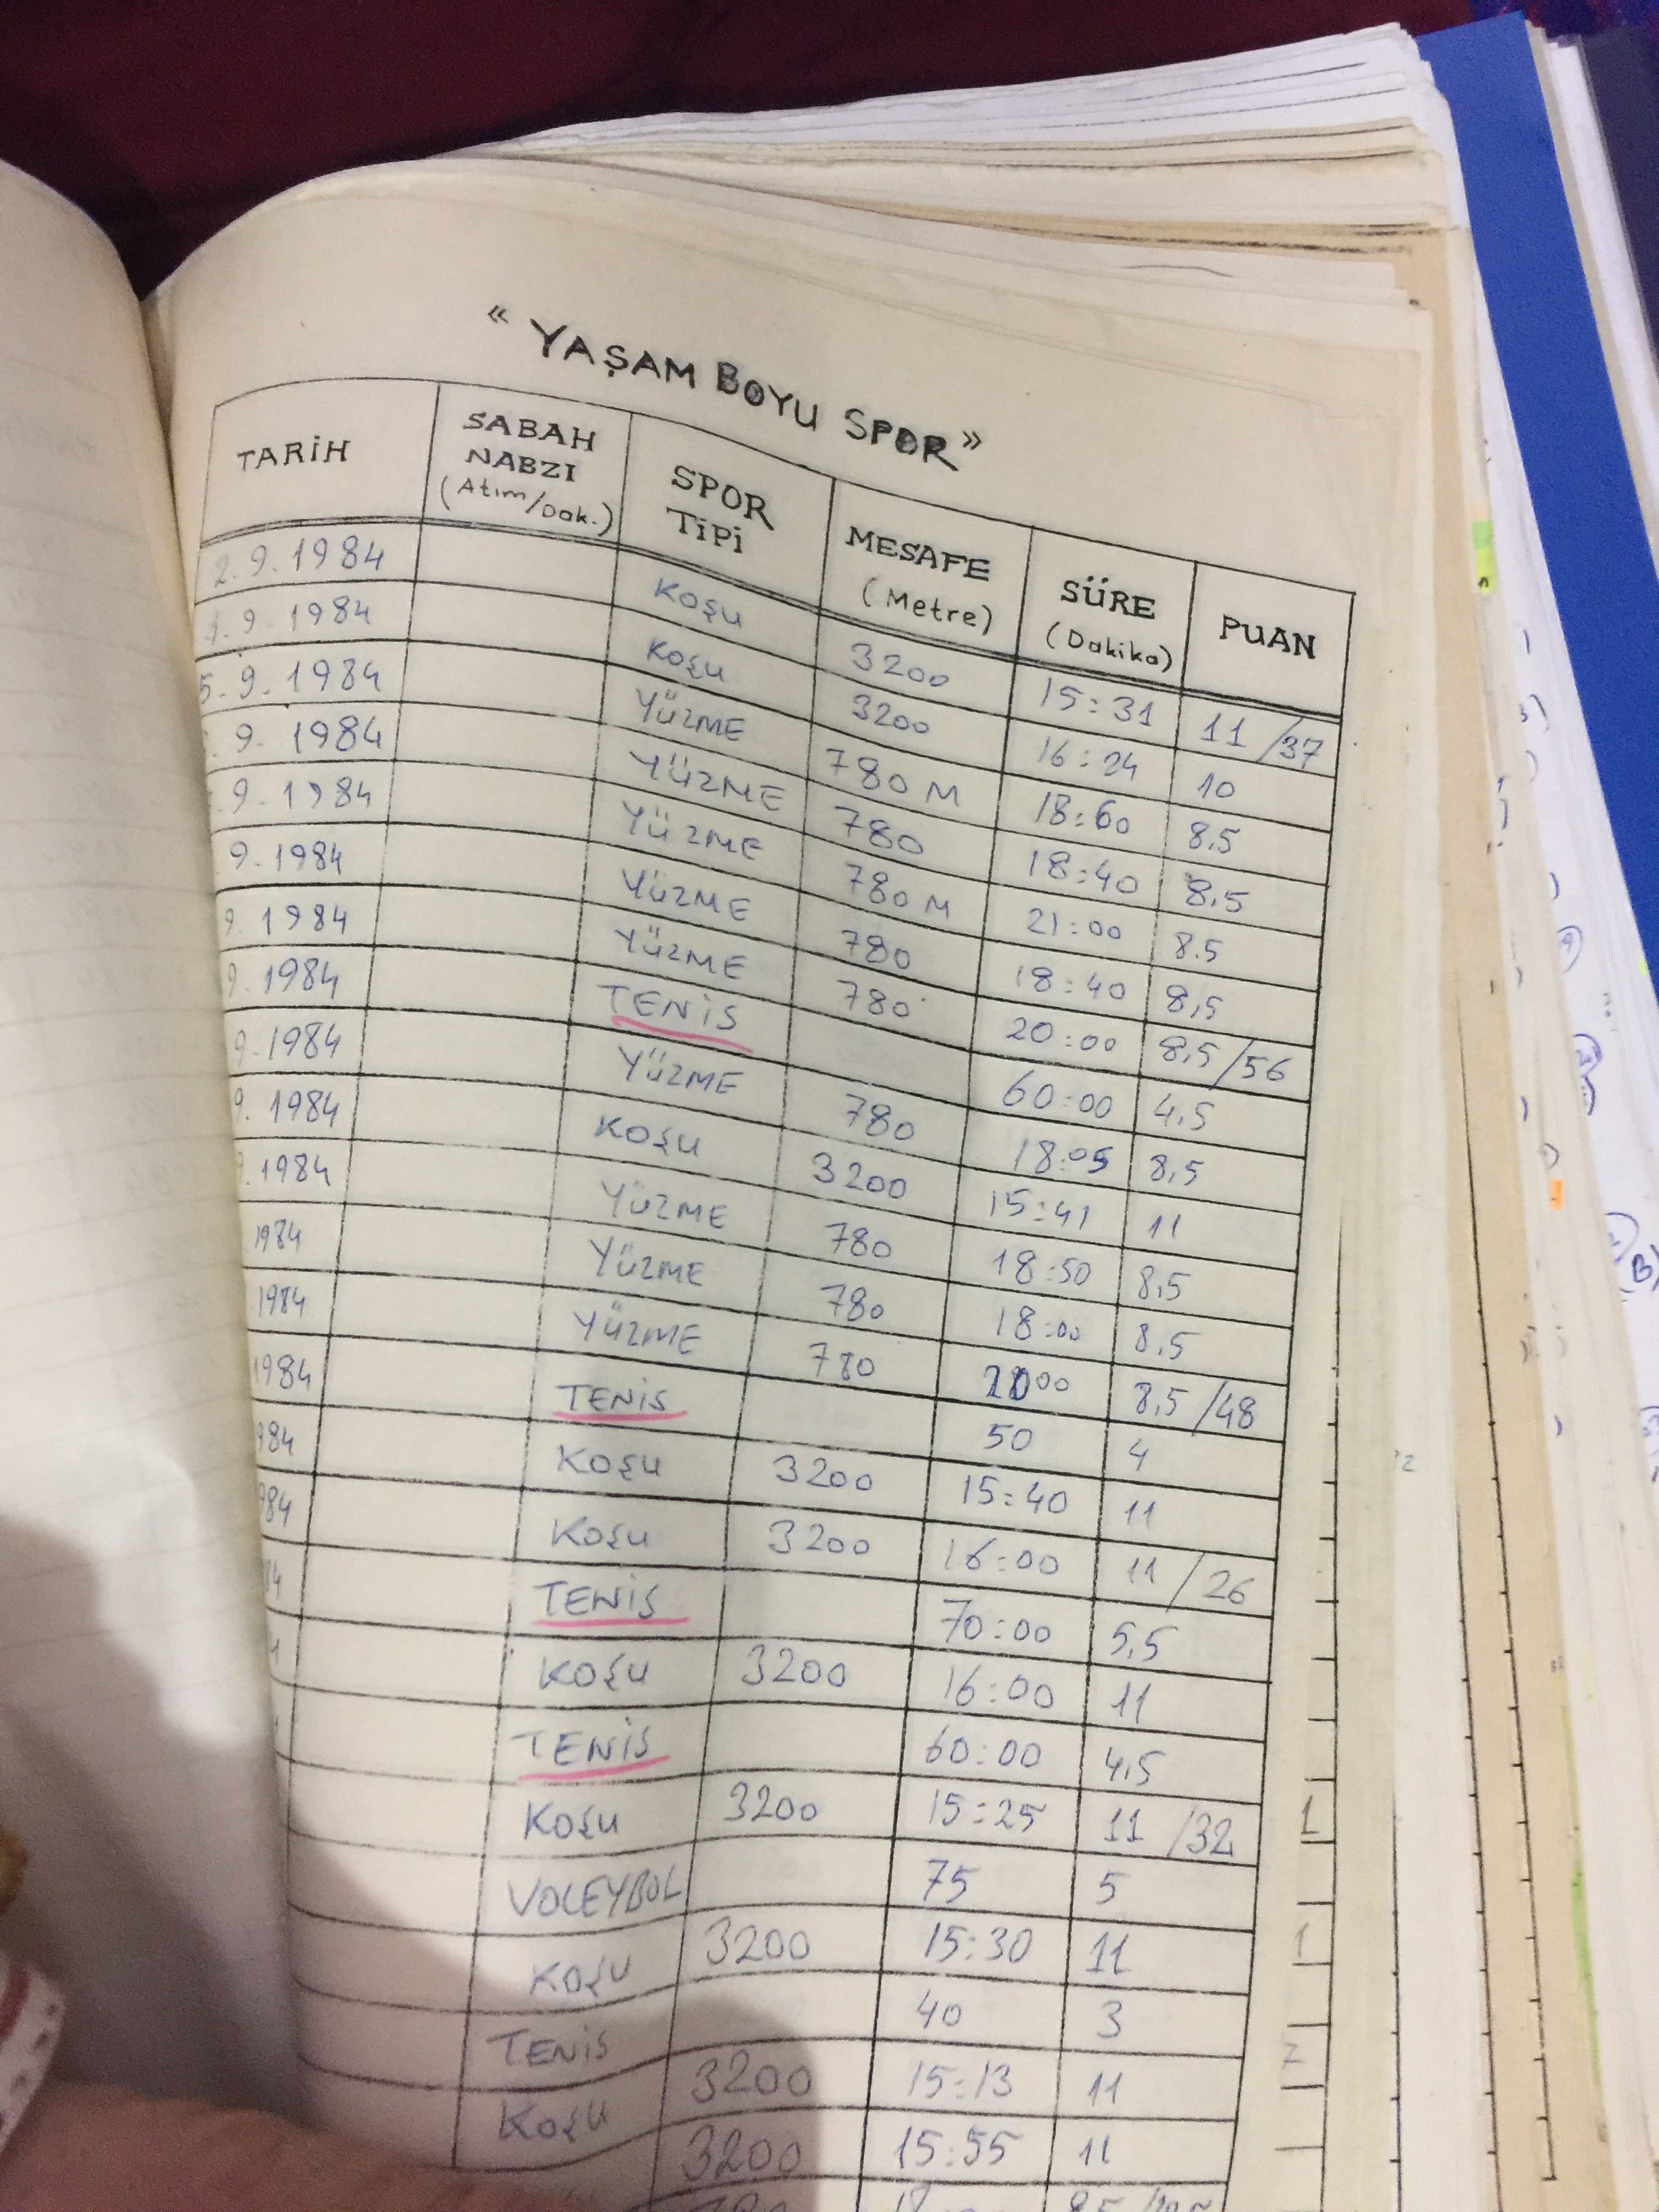 « YAŞAM BOYU SPOR »
TARİH SABAH NABZI (Atım/Dak.) SPOR TİPİ MESAFE (Metre) SÜRE (Dakika) PUAN
2.9.1984 KOŞU 3200 15:31 11 /37
9.1984 KOŞU 3200 16:24 10
5.9.1984 YÜZME 780 M 18:60 8.5
9.1984 YÜZME 780 18:40 8,5
9.1984 YÜZME 780 M 21:00 8.5
9.1984 YÜZME 780 18:40 8,5
9.1984 YÜZME 780 20:00 8,5 /56
9.1984 TENİS 60:00 4,5
9.1984 YÜZME 780 18:05 8,5
9.1984 KOŞU 3200 15:41 11
.1984 YÜZME 780 18:50 8,5
1984 YÜZME 780 18:00 8,5
1984 YÜZME 780 00 8,5 /48
1984 TENİS 50 4
984 KOŞU 3200 15:40 11
984 KOŞU 3200 16:00 11 /26
84 TENİS 70:00 5,5
KOŞU 3200 16:00 11
TENİS 60:00 4,5
KOŞU 3200 15:25 11 /32
VOLEYBOL 75 5
KOŞU 3200 15:30 11
TENİS 40 3
KOŞU 3200 15:13 11
3200 15:55 11